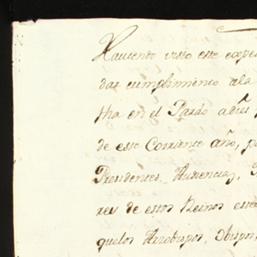 Haviendo visto este exped
dar cumplimiento a la
fha en el Pardo a diez
de este Corriente año, p
Presidentes, Audiencias,
res de estos Reinos est
quelos Arzobispos, Obispos,